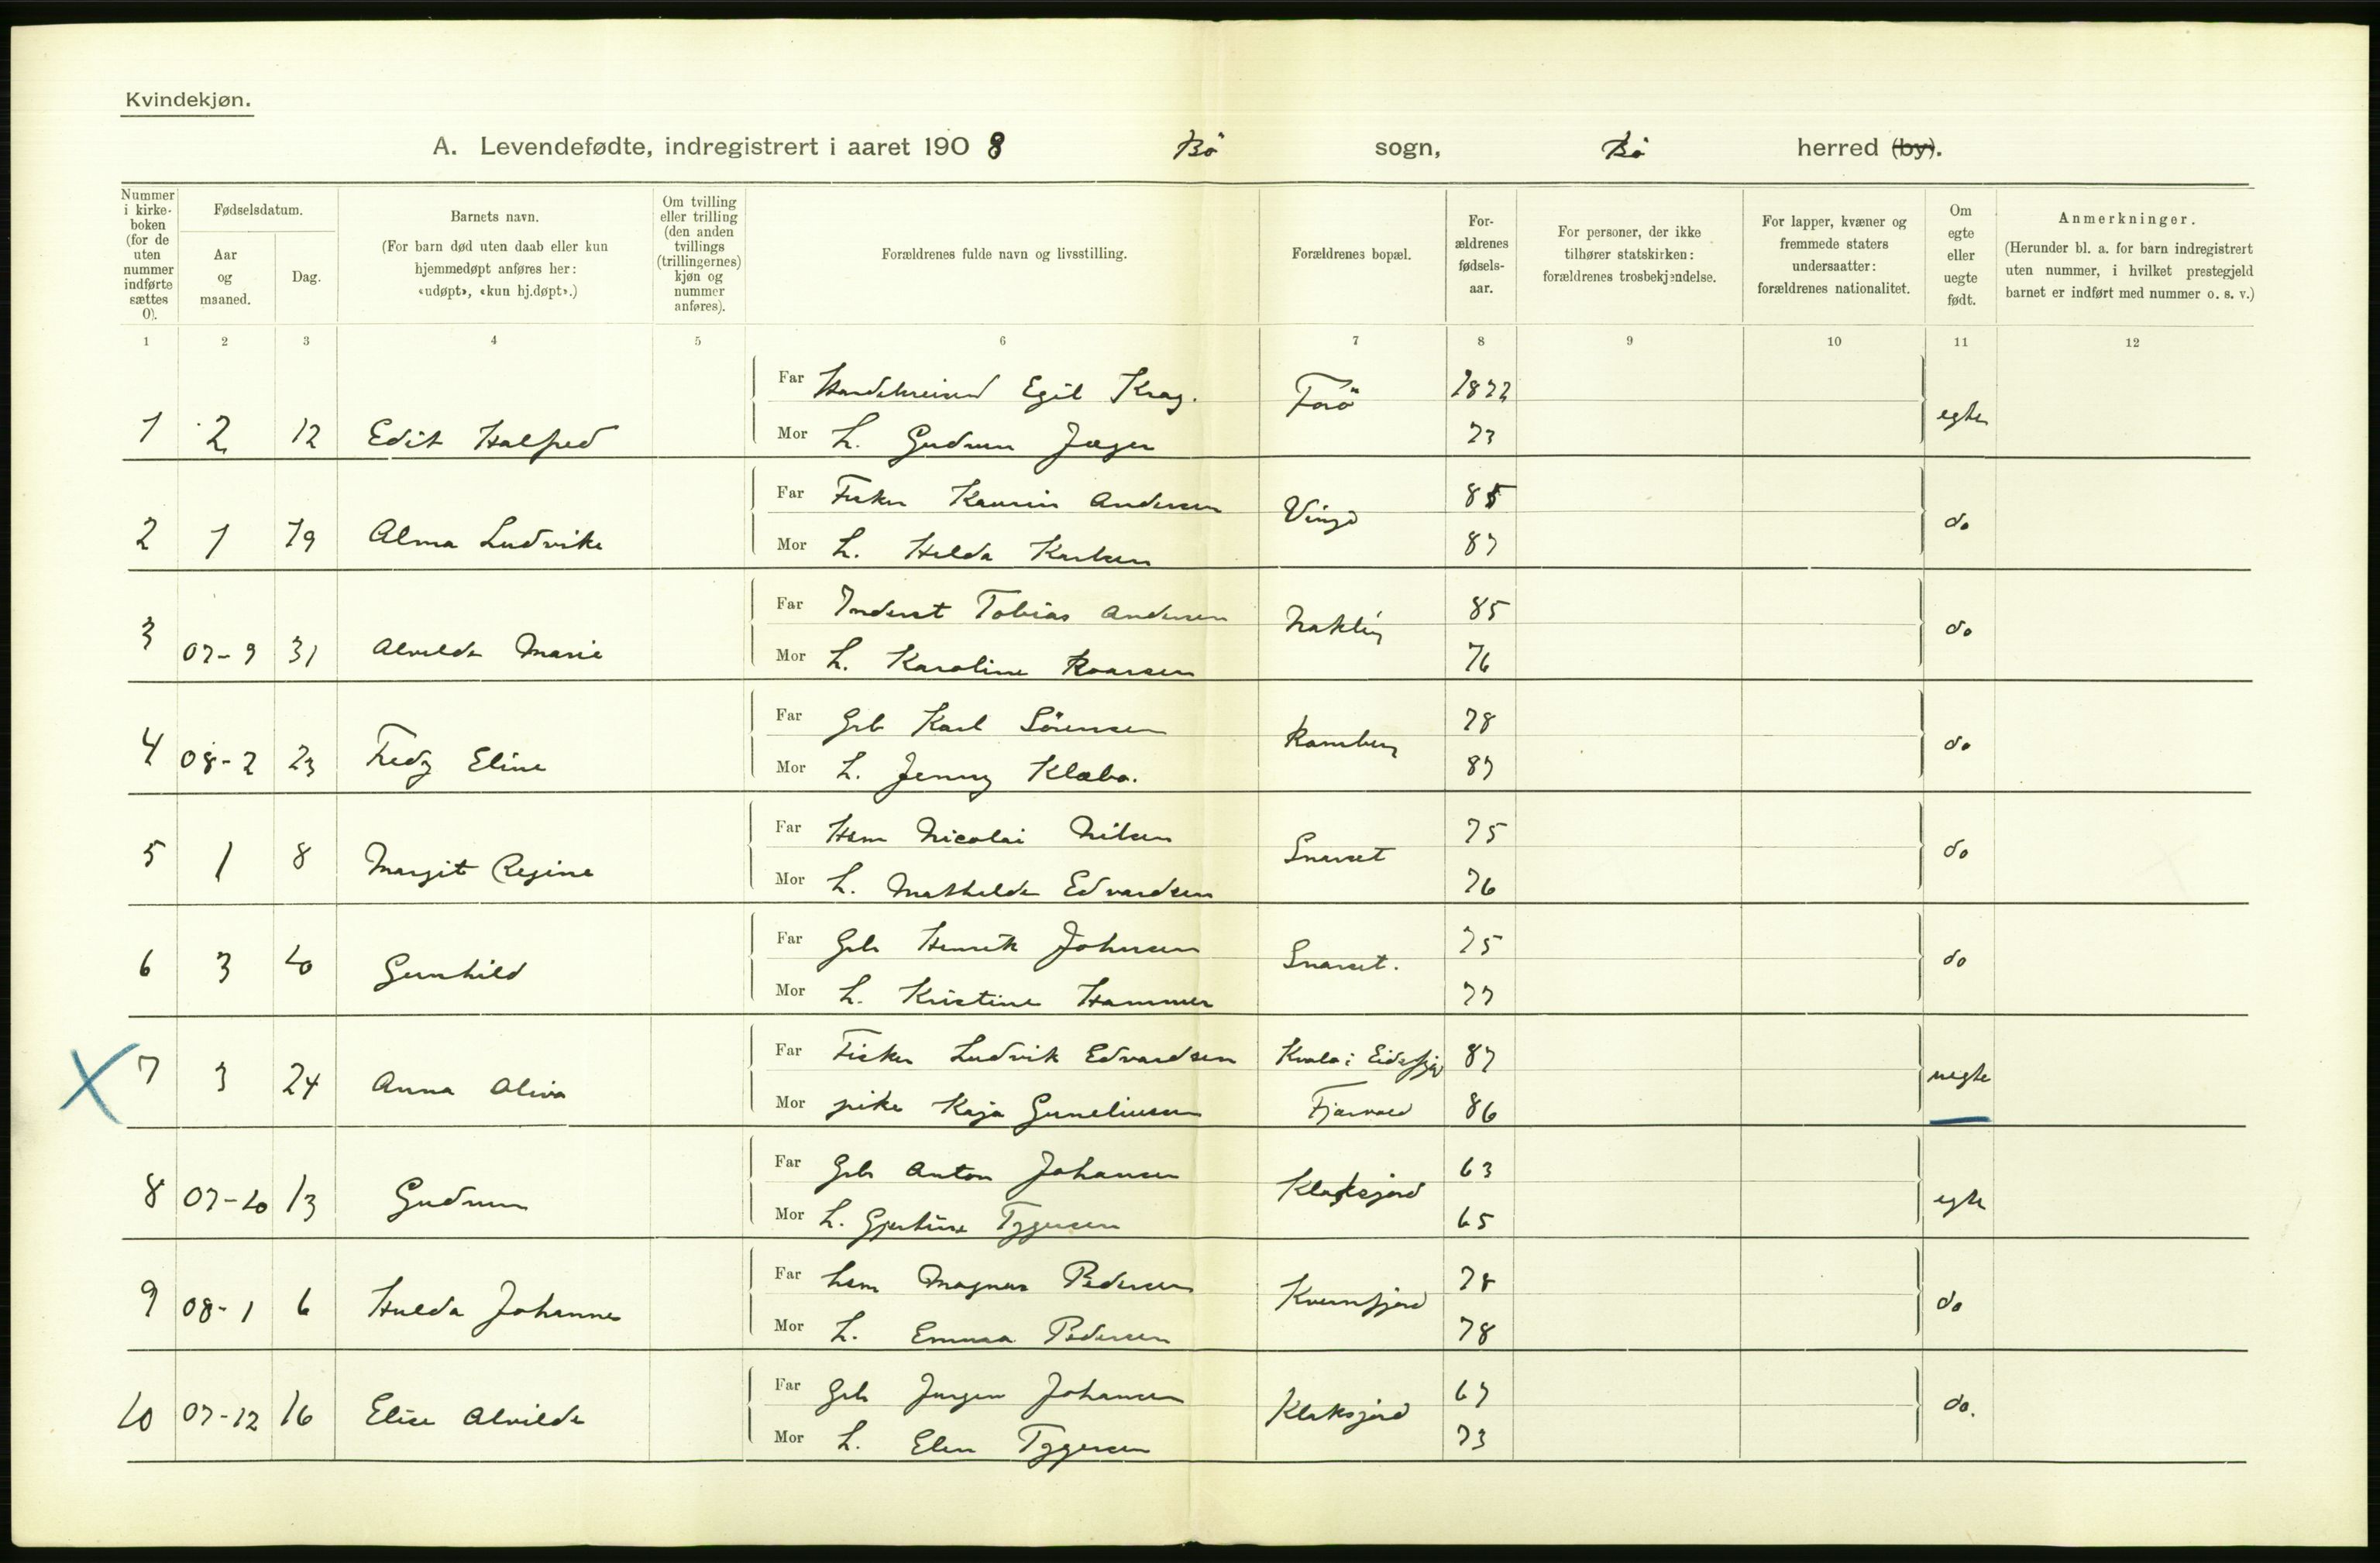 Kvindekjøn.
A. Levendefødte, indregistrert i aaret 1908 Bö sogn, Bö herred (by).
Nummer i kirke-boken (for de uten nummer indførte sættes 0).
Fødselsdatum.
Aar og maaned.
Dag.
Barnets navn.
(For barn død uten daab eller kun hjemmedøpt anføres her: «udøpt», «kun hj.døpt».)
Om tvilling eller trilling (den anden tvillings (trillingernes) kjøn og nummer anføres).
Forældrenes fulde navn og livsstilling.
Forældrenes bopæl.
For-ældrenes fødsels-aar.
For personer, der ikke tilhører statskirken: forældrenes trosbekjendelse.
For lapper, kvæner og fremmede staters undersaatter: forældrenes nationalitet.
Om egte eller uegte født.
Anmerkninger.
(Herunder bl. a. for barn indregistrert uten nummer, i hvilket prestegjeld barnet er indført med nummer o. s. v.)
1 2 3 4 5 6 7 8 9 10 11 12
Far Egil Krag. Forö 1872
1 2 12 Edit Halfred egte
Mor h. Gudrun Jæger 73
Far Fisker Kaurin Andersen Vinje 85
2 1 19 Alma Ludvike do
Mor h. Hilda Karlsen 87
Far Inderst Tobias Andersen 85
3 07-9 31 Alvilde Marie do
Mor h. Karoline Roarsen 76
Far Grb Karl Sörensen Ramberg 78
4 08-2 23 Fredy Eline do
Mor h. Jenny Klæbo. 87
Far Hsm Nicolai Nilsen Snarset 75
5 1 8 Margit Regine do
Mor h. Mathilde Edvardsen 76
Far Grb Henrik Johnsen Snarset. 75
6 3 20 Gunhild do
Mor h. Kristine Hammer 77
Far Fisker Ludvik Edvardsen Kvalø i Eidsfjord 87
7 3 24 Anna Oliva uegte
Mor pike Kaja Guneliussen Fjærvold 86
Far Grb Anton Johansen Klaksjord 63
8 07-10 13 Gudrun egte
Mor h. Gjertine Tygesen 65
Far hsm Magnus Pedersen Kvernfjord 78
9 08-1 6 Hulda Johanne do
Mor h. Emma Pedersen 78
Far Grb Jørgen Johansen Klaksjord 67
10 07-12 16 Elise Alvilde do.
Mor h. Elen Tygesen 73